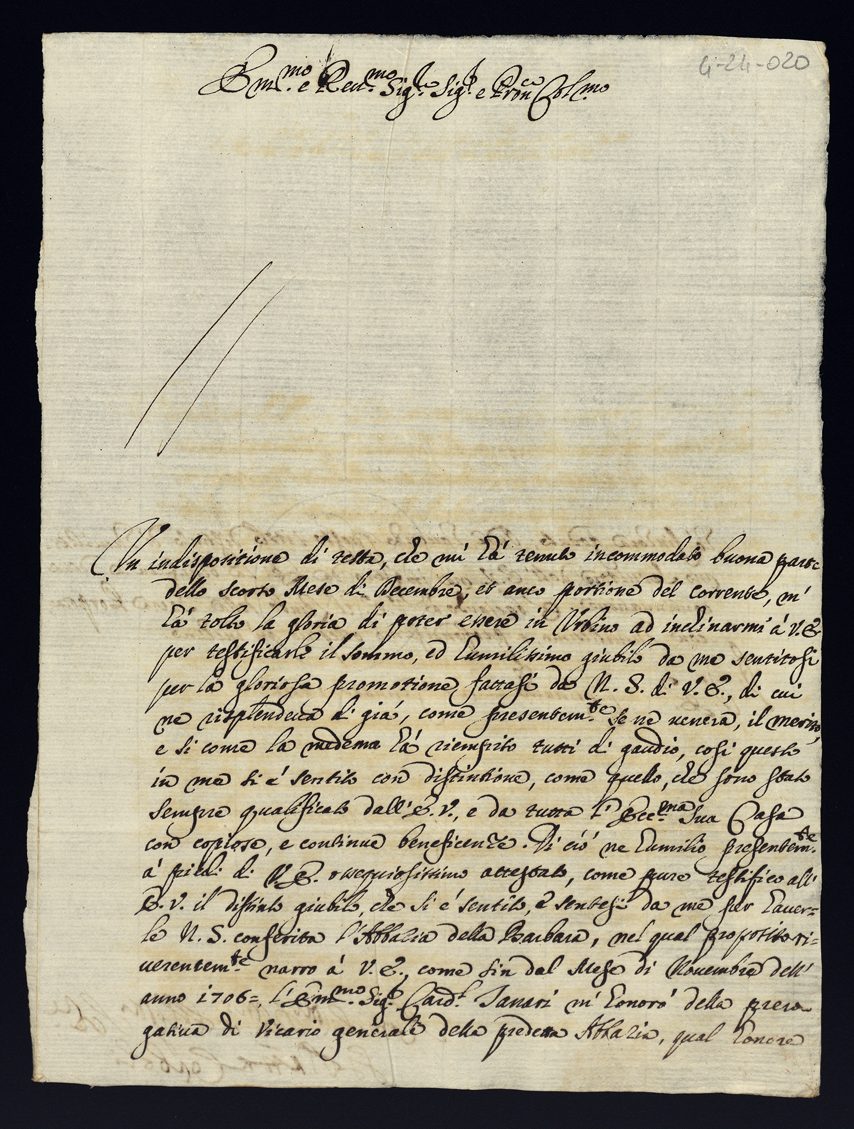 4-24-020
Em.mo e Reu.mo Sig.re Sig.re e Pron.e Col.mo
Un indispositione di testa, che mi hà tenuto incommodato buona parte
dello scorso Mese di Decembre, et anco portione del corrente, m'
hà tolto la gloria di poter essere in Urbino ad inclinarmi à V. E.
per testificarle il sommo, ed humilissimo giubilo da me sentitosi
per la gloriosa promotione fattasi da N. S. di V. E., di cui
ne risplendeua di già, come presentem.te se ne uenera, il merito,
e si come la medema hà riempito tutti di gaudio, così questo
in me si è sentito con distintione, come quello, che sono stato
sempre qualificato dall'E. V., e da tutta l'Ecc.ma Sua Casa
con copiose, e continue beneficenze. Di ciò ne humilio presentem.te
à piedi di V. E. ossequiosissimo attestato, come pure testifico all'
E. V. il distinto giubilo, che si è sentito, e sentesi da me per hauer=
le N. S. conferita l'Abbazia della Barbara, nel qual proposito ri=
uerentem.te narro à V. E., come sin dal Mese di Nouembre dell'
anno 1706= l'Em.mo Sig.r Card.l Tanari m'honorò della prero=
gatiua di Vicario generale della predetta Abbazia, qual honore